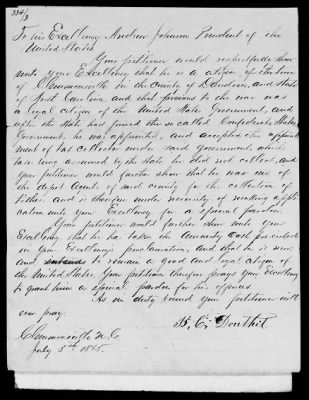 To his Excellency Andrew Johnson President of the
United States
Your petitioner would respectfully show
unto your Excellency that he is a citizen of the town
of Clemmonsville in the County of Davidson, and State
of North Carolina, and that previous to the war was
a loyal citizen of the United States Government, and
after the State had joined the so called Confederate States
Government, he was appointed, and accepted the appoint
ment of tax collector under said government, which
tax being assumed by the State he did not collect, and
your petitioner would further show that he was one of
the depot Agents of said county for the collection of
tithes and is therefore under necessity of making appli
cation unto your Excellency for a special pardon.
Your petitioner would further show unto your
Excellency that he has taken the Amnesty Oath prescribed
in your Excellency's proclamation, and that he is now,
and intends to remain a good and loyal citizen of
the United States. Your petitioner therefore prays your Excellency
to grant him a special pardon for his offences
As in duty bound your petitioner will
ever pray.
B. C. Douthit
Clemmonsville N. C.
July 5th 1865.